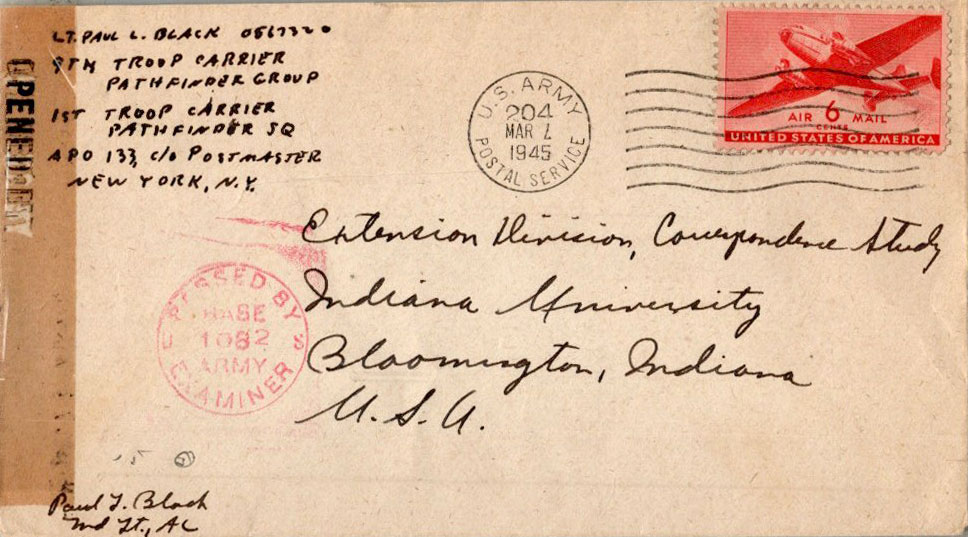 LT. PAUL L. BLACK 0567320
9TH TROOP CARRIER
PATHFINDER GROUP
1ST TROOP CARRIER
PATHFINDER SQ
APO 133, c/o POSTMASTER
NEW YORK, N.Y.
OPENED BY
U.S. ARMY
204
MAR
1945
POSTAL SERVICE
AIR 6 MAIL
CENTS
UNITED STATES OF AMERICA
Extension Division, Correspondence Study
Indiana University
Bloomington, Indiana
U.S.A.
PASSED BY
BASE
1082
U ARMY S
EXAMINER
Paul L. Black
2nd Lt., AC